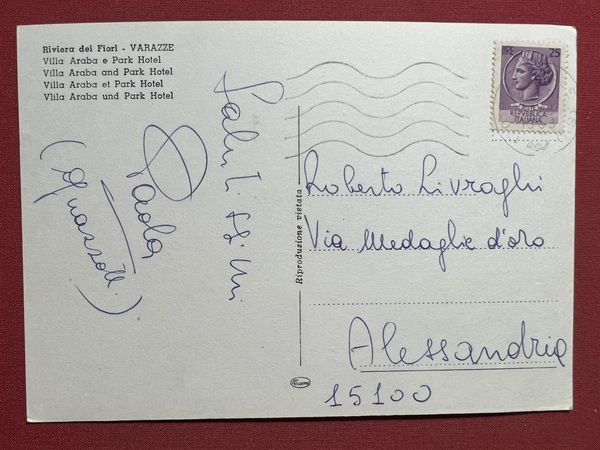 Riviera dei Fiori - VARAZZE
Villa Araba e Park Hotel
Villa Araba and Park Hotel
Villa Araba et Park Hotel
Vlila Araba und Park Hotel
Saluti
Paola
Riproduzione vietata
LIRE 25
REPVBBLICA
ITALIANA
Roberto Livraghi
Via Medaglie d'oro
Alessandria
15100